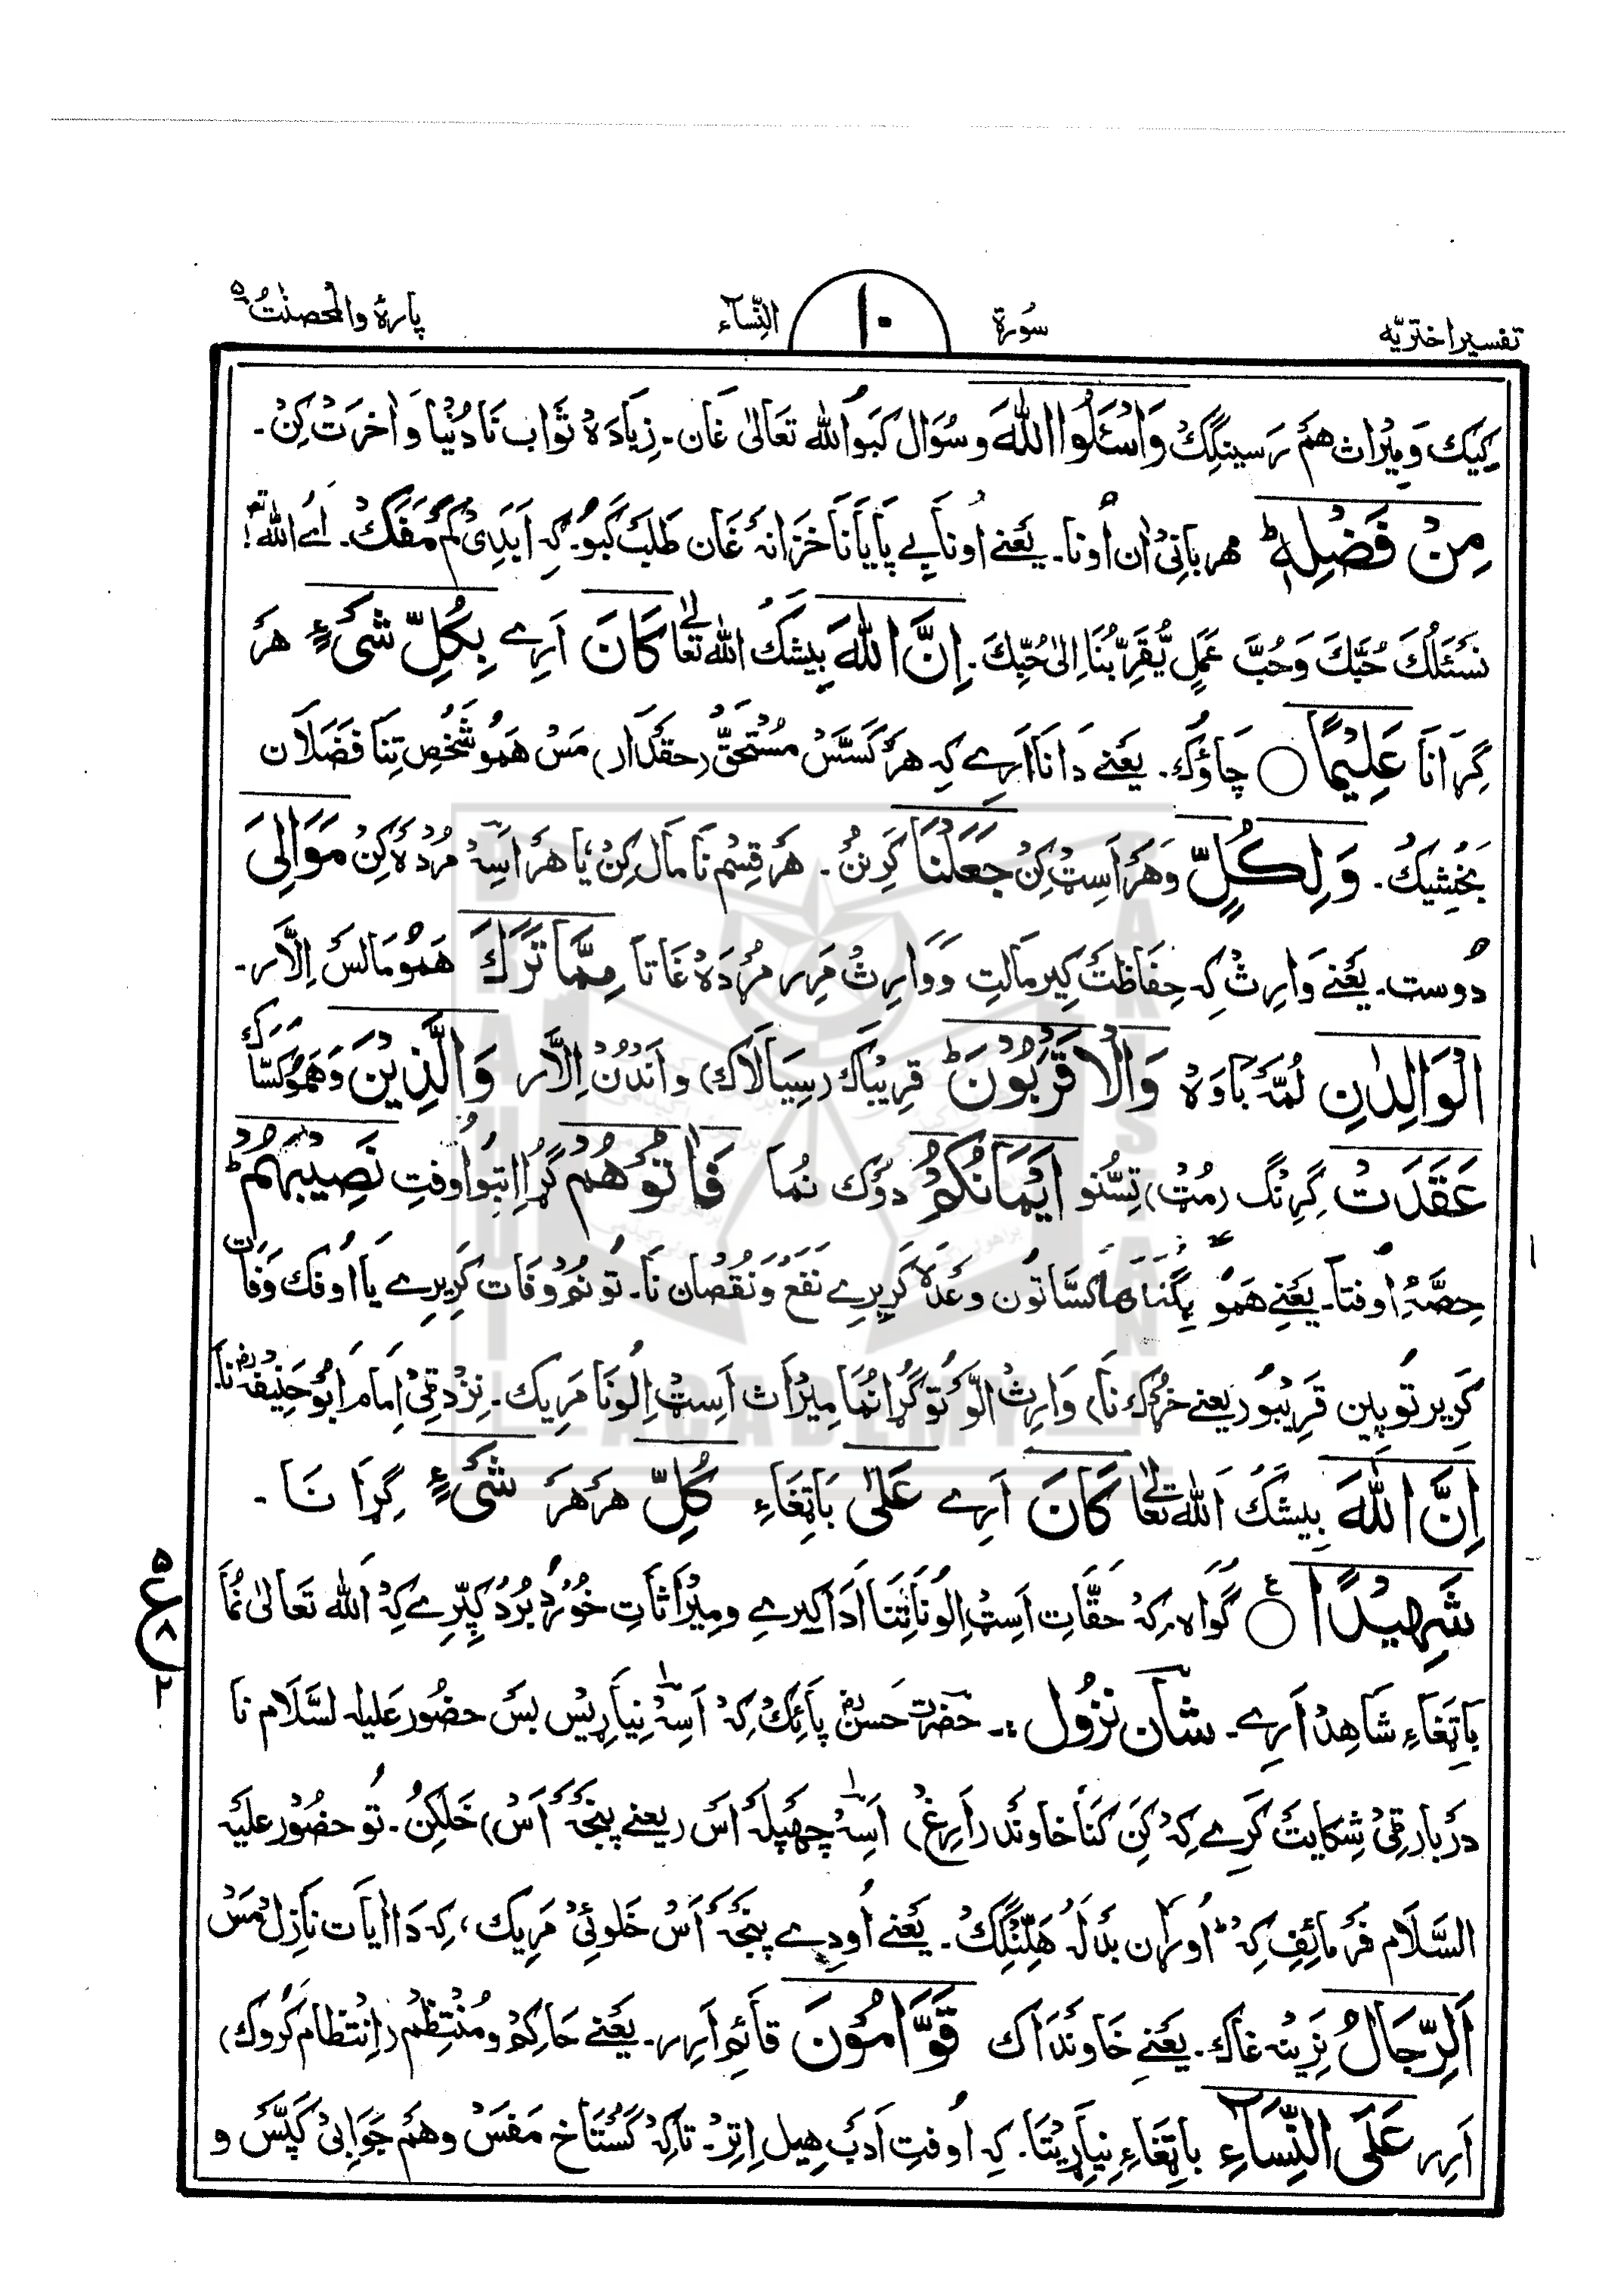 تفسیر اختریّه
سُورۃ
١٠
النِّسآء
پارۂ والمحصنٰتُ ۵
کِیک وَمِیْراث هَم رَسینگِکْ وَاسْئَلُوا اللّٰهَ و سُوَال کَبَو اَللّٰه تعَالیٰ غَان۔ زِیَادَهْ ثَوَاب نَا دُنْیَا وَ اٰخرَتْ کِنْ۔
مِنْ فَضْلِهٖ ؕ مهربانِیْ اٰن اُونا۔ یَعْنے اُونَا بے پَایَانَا خَزَانَہ غَان طَلَبْ کَبَوْ۔ کِہ اَبَدِیْ کَم مَفَکْ۔ اے اَللّٰه!
نَسْئَلُكَ حُبَّكَ وَحُبَّ عَمَلٍ یُّقَرِّبُنَا اِلیٰ حُبِّكَ۔ اِنَّ اللّٰهَ بِیشَکْ اللّٰه تعَالےٰ كَانَ اَرِے بِكُلِّ شَیْءٍ هَر
گِڑَانَا عَلِیْمًا ○ چَاؤُک۔ یَعْنے دَانَا اَرِے کِہ هَر کَسَّسْ مُسْتَحَقّ (حقدَار) مَسْ هَمو شَخْص تِنَا فَضْلَان
بَخْشِیکُ۔ وَلِكُلٍّ وَهَر اَسِٹ کِنْ جَعَلْنَا کَرِنُنْ۔ هَر قِسْم نَا مَال کِنْ یا هَر اَسِہ مُرْدَه کِنْ مَوَالِیَ
دُوست۔ یَعْنے وَارِثْ کِہ حِفَاظَتْ کِیر مَالتِ وَ وَارِثْ مَرِر مُرْدَهْ غَاتَا مِمَّا تَرَكَ هَمُو مَالسْ اِلَّار۔
الْوَالِدٰنِ لُمَّہ بَاوَهْ وَالْاَقْرَبُوْنَ ؕ قَرِیْبَاک (سِیَالَاک) وَ اَنْدُنْ اِلَّار وَالَّذِیْنَ وَهَمُو کَسَّاک
عَقَدَتْ گِرَنْگ (مُٹ) تِسُّنو اَیْمَانُكُمْ دُوک نُمَا فَاٰتُوْهُمْ گُڑا اِتبُو اُوفتِ نَصِیْبَهُمْ ؕ
حِصَّہْ اُوفتا۔ یَعْنے هَمو کَسَّاتون وَعْدَه کَرِیرِے نَفَع وَ نُقْصَان نَا۔ تو نُم وَفَات کَرِیرِے یَا اُوفک وَفَات
کَرِیر تو پین قَرِیْبو (یعنے خُرک نَا) وَارِثْ الَّو تو گُڑا نُمَا مِیْرَاث اَسِٹ اِلُونَا مَرِیک۔ نِزْد قِیْ اِمَام اَبُو حَنِیْفَہ رح نَا۔
اِنَّ اللّٰهَ بِیشَکْ اَللّٰه تعَالےٰ كَانَ اَرِے عَلٰی بَاتِغَاءِ كُلِّ هَر هَر شَیْءٍ گِڑَا نَا۔
شَهِیْدًا ○ ع گُوَاه۔ کِہ حَقَّاتِ اَسِٹ اِلُونَا تِنَا اَدَا کیرِے و مِیْرَاثَاتِ خُوْرْد بُرْد کپِّرِے کِہ اَللّٰه تَعَالیٰ نُمَا
بَاتِغَاءِ شَاهِدْ اَرِے۔ شان نزُول :۔ حضرت حَسن رض پَائِکْ کِہ اَسِہ نِیَارِیس بَسْ حضُور عَلیہِ السَّلَام نَا
دَرْبَار قِیْ شِکَایَتْ کَرِے کِہ کَنْ کَنَا خَاوَند (اَرِغ) اَسِہ چھپلہ اَس (یعنے پنجَہ اَسْ) خَلکُنْ۔ تو حضُور عَلیہِ
السَّلَام فَرمائِف کِہ اُوراَن بدلَہ هَلِنْگِکْ۔ یَعْنے اُودِے پنجَہ اَسْ خَلوئِیْ مَرِیک، کِہ دَا اٰیَات نَازِل مَسْ
اَلرِّجَالُ نَرِینہ غاک۔ یَعْنے خَاوَنْدَاک قَوّٰمُوْنَ قَائِم اَرِر۔ یَعْنے حَاکِم و مُنْتَظِم (اِنْتظَام کَرُوک)
اَرِر عَلَی النِّسَآءِ بَاتِغَاءِ نِیَارِیْتَا۔ کِہ اُوفتِ اَدَب هِیل اِتِر۔ تاکِہ گُسْتَاخ مَفَسْ وهَم جَوَابِیْ کَپَّسْ و
۵
ع
٨
٢